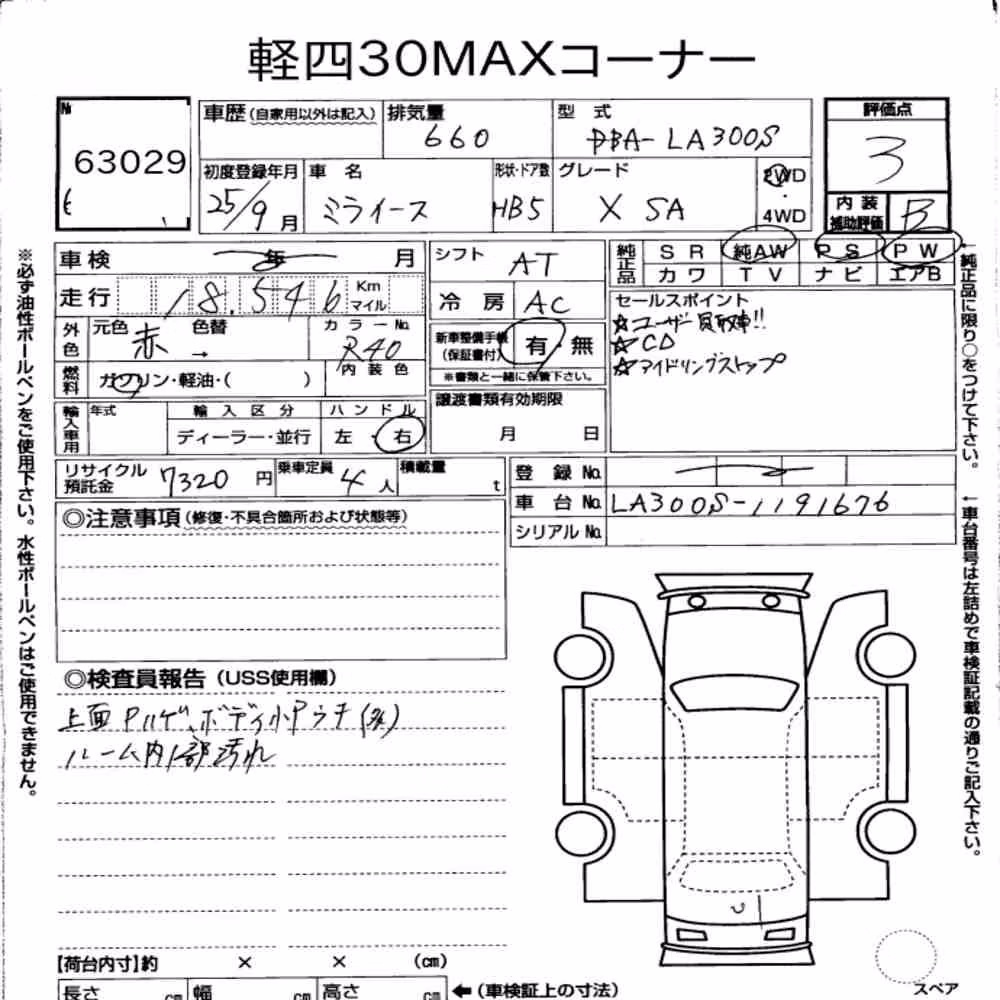 軽四30MAXコーナー
№ 63029
車歴(自家用以外は記入) 排気量 660 型式 DBA-LA300S
初度登録年月 25/9月 車名 ミライース 形状・ドア数 HB5 グレード X SA 2WD・4WD
評価点 3
内装補助評価 B
車検 年 月
走行 18,546 Km マイル
外色 元色 赤 色替 → カラーNo. R40
内装色
燃料 ガソリン・軽油・( )
輸入車用 年式 輸入区分 ハンドル
ディーラー・並行 左・右
シフト AT
冷房 AC
新車整備手帳(保証書付) 有・無
※書類と一緒に保管下さい。
譲渡書類有効期限
月 日
純正品 SR 純AW PS PW
カワ TV ナビ エアB
セールスポイント
☆ユーザー買取車!!
☆CD
☆アイドリングストップ
リサイクル預託金 7320円 乗車定員 4人 積載量 t
登録No.
車台No. LA300S-1191676
シリアルNo.
◎注意事項(修復・不具合箇所および状態等)
◎検査員報告(USS使用欄)
上面Pハゲ、ボディ小Pウチ
ルーム内1部汚れ
【荷台内寸】約 × × (cm)
長さ cm 幅 cm 高さ cm ←(車検証上の寸法)
スペア
※必ず油性ボールペンをご使用下さい。水性ボールペンはご使用できません。
←純正品に限り○をつけて下さい。
←車台番号は左詰めで車検証記載の通りご記入下さい。